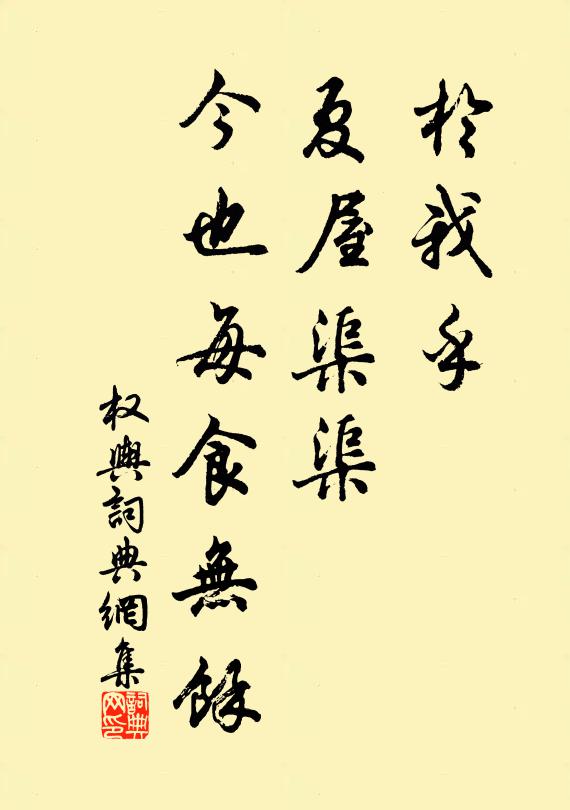 於我乎
夏屋渠渠
今也每食無餘
权輿詞典網集
詞典
网印